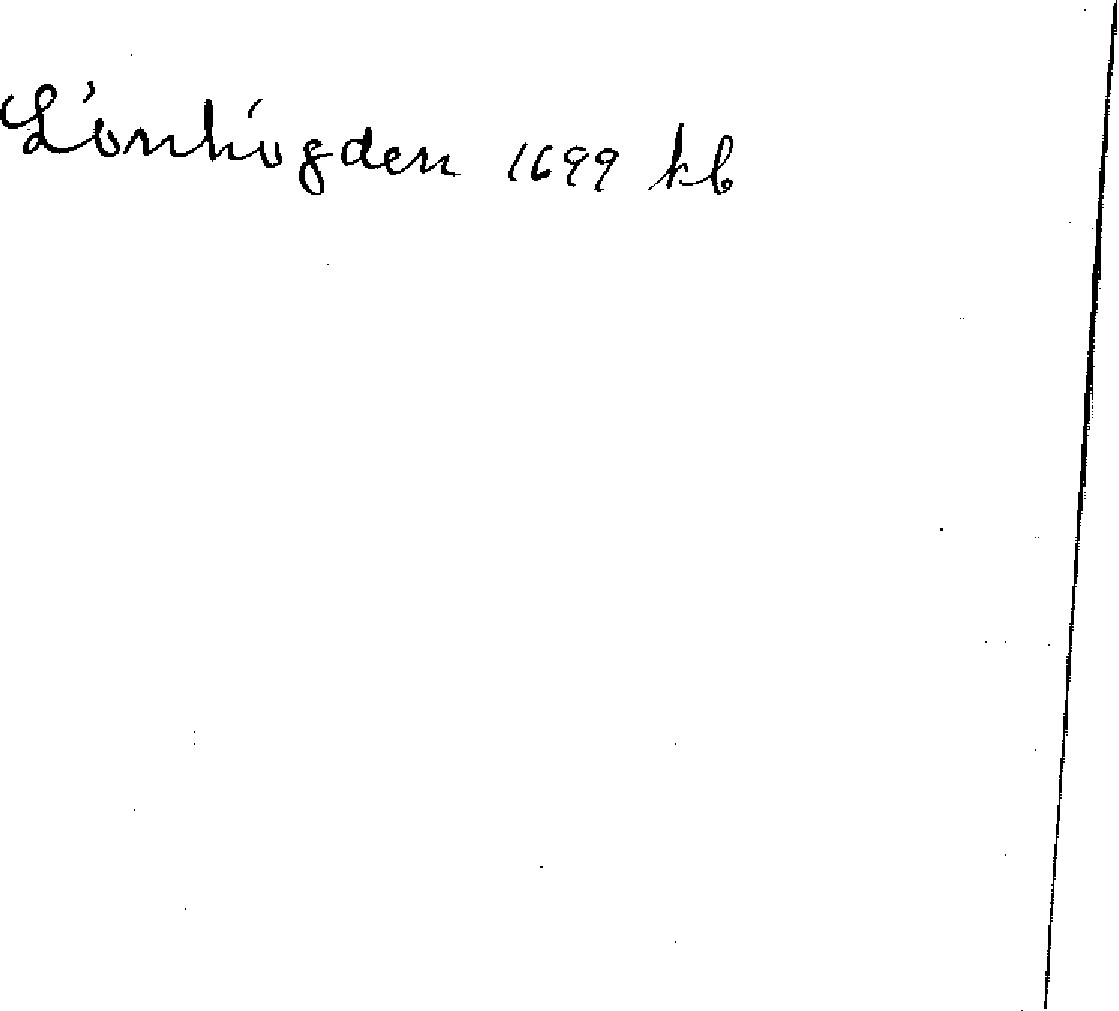 Lönhögden 1699 kb